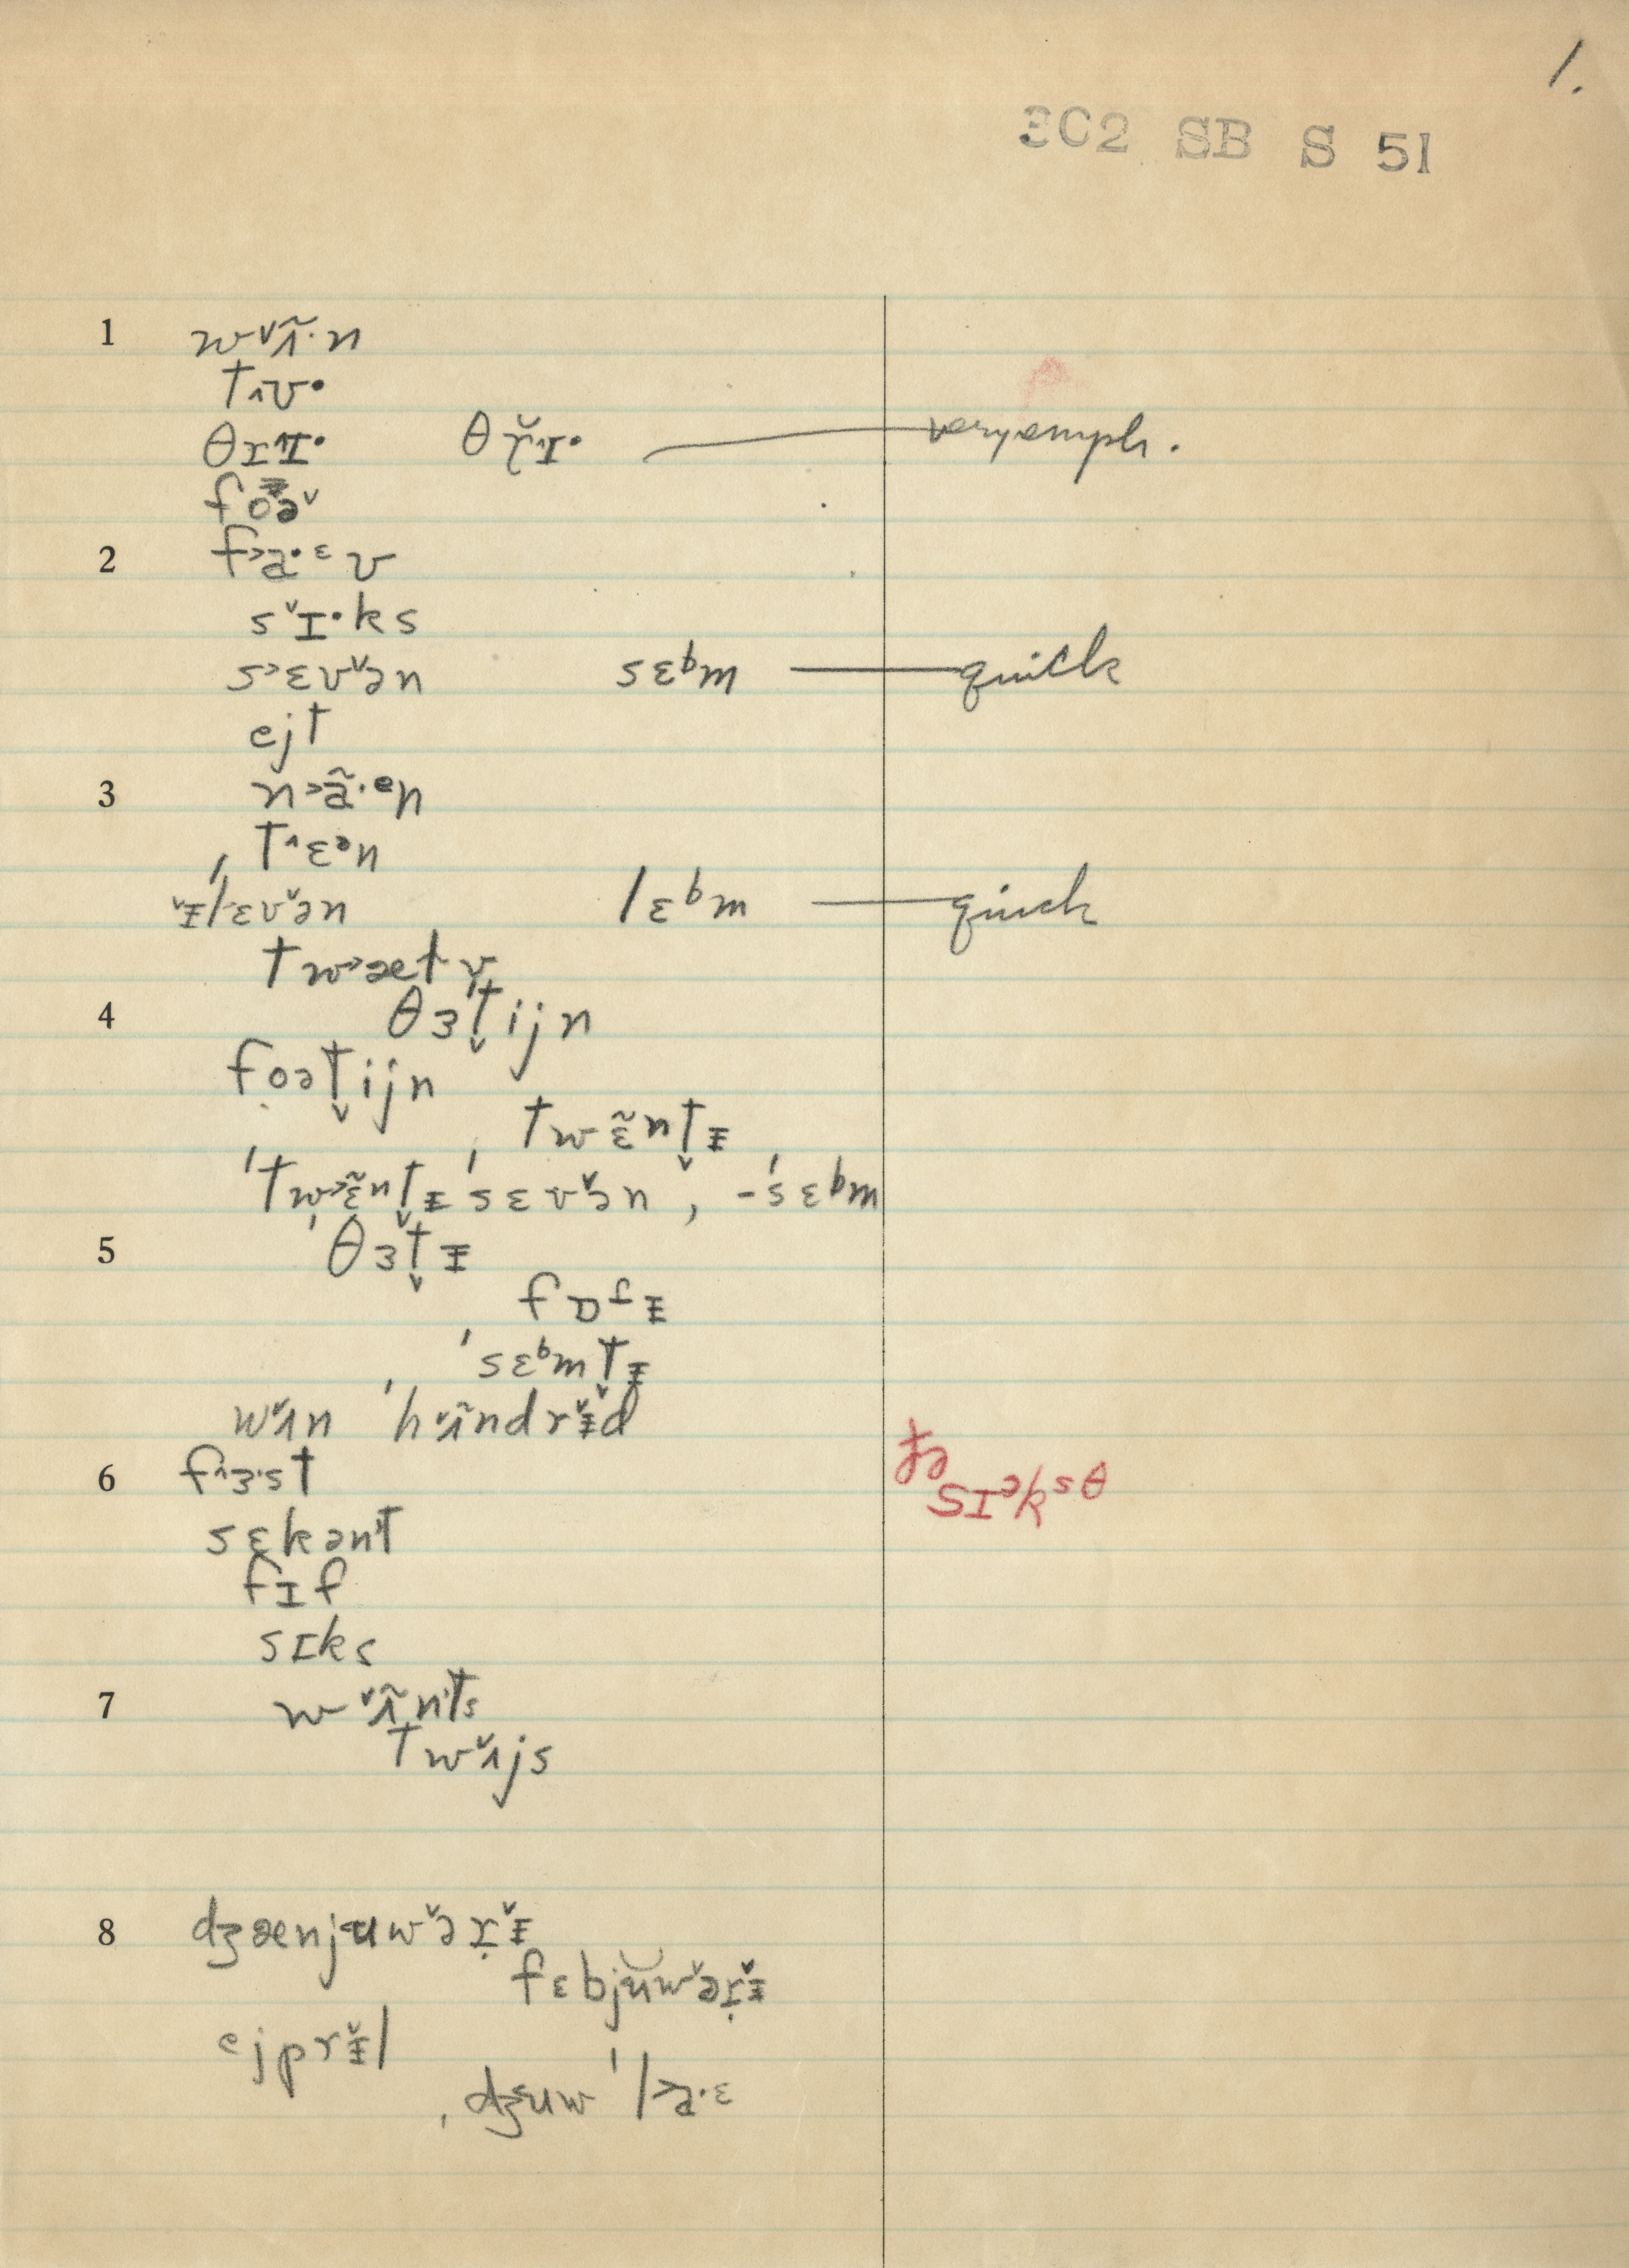 1.
3C2 SB S 51
1 w˅ʌ̃·n
t˄ʊ·
θɪ˄ɪ· θɾ̆˄ɪ· very emph.
foə˅
2 f˃a·ᵋv
s˅ɪ·ks
s˃ɛv˅ən sɛᵇm quick
ejt
3 n˃ã·ᵉn
t˄ɛᵊn
˅ᵻˈlɛv˅ən lɛᵇm quick
tw˃æl
4 θɜt̬ijn
foət̬ijn
twɛ̃ⁿt̬ᵻ
ˈtw˃ɛ̃ⁿt̬ᵻˈsɛv˅ən, -ˈsɛᵇm
5 ˈθɜt̬ᵻ
fɒᶠᵻ
ˈsɛᵇmt̬ᵻ
w˅ʌn ˈh˅ʌ̃ndr˅ᵻd
6 f˄ɜ·st
sɛkənt
fɪf
sɪks
7 w˅ʌ̃nts
tw˅ʌjs
8 dʒænjʉw˅əɪ̣˅ᵻ
fɛbjŭw˅əɪ̣˅ᵻ
ejpr˅ᵻl
ˌdʒuwˈl˃a·ᵋ